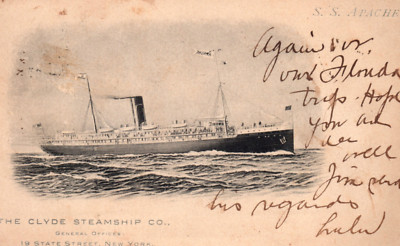 S. S. APACHE
Again
our Florida
trip. Hope
you are
well
Jim send
his regards
Lulu
THE CLYDE STEAMSHIP CO.,
GENERAL OFFICES
19 STATE STREET, NEW YORK.